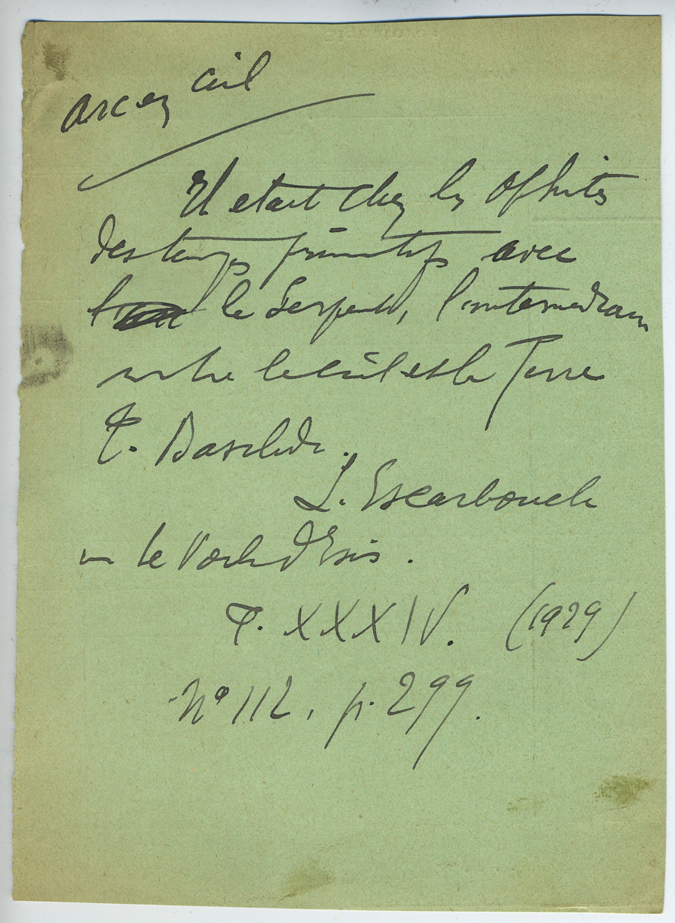 Arc en ciel
Il etait chez les Ophites
des temps primitifs avec
le Serpent, l'intermediaire
entre le ciel et la Terre
T. Basilide.
L. Escarboucle
in le Voile d'Isis.
T. XXXIV. (1929)
No 112. p. 299.